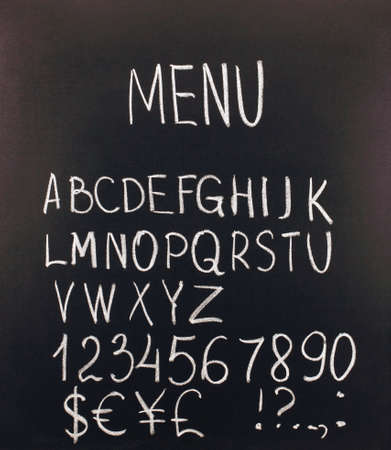 MENU
ABCDEFGHIJK
LMNOPQRSTU
VWXYZ
1234567890
$€¥£ !?..,;